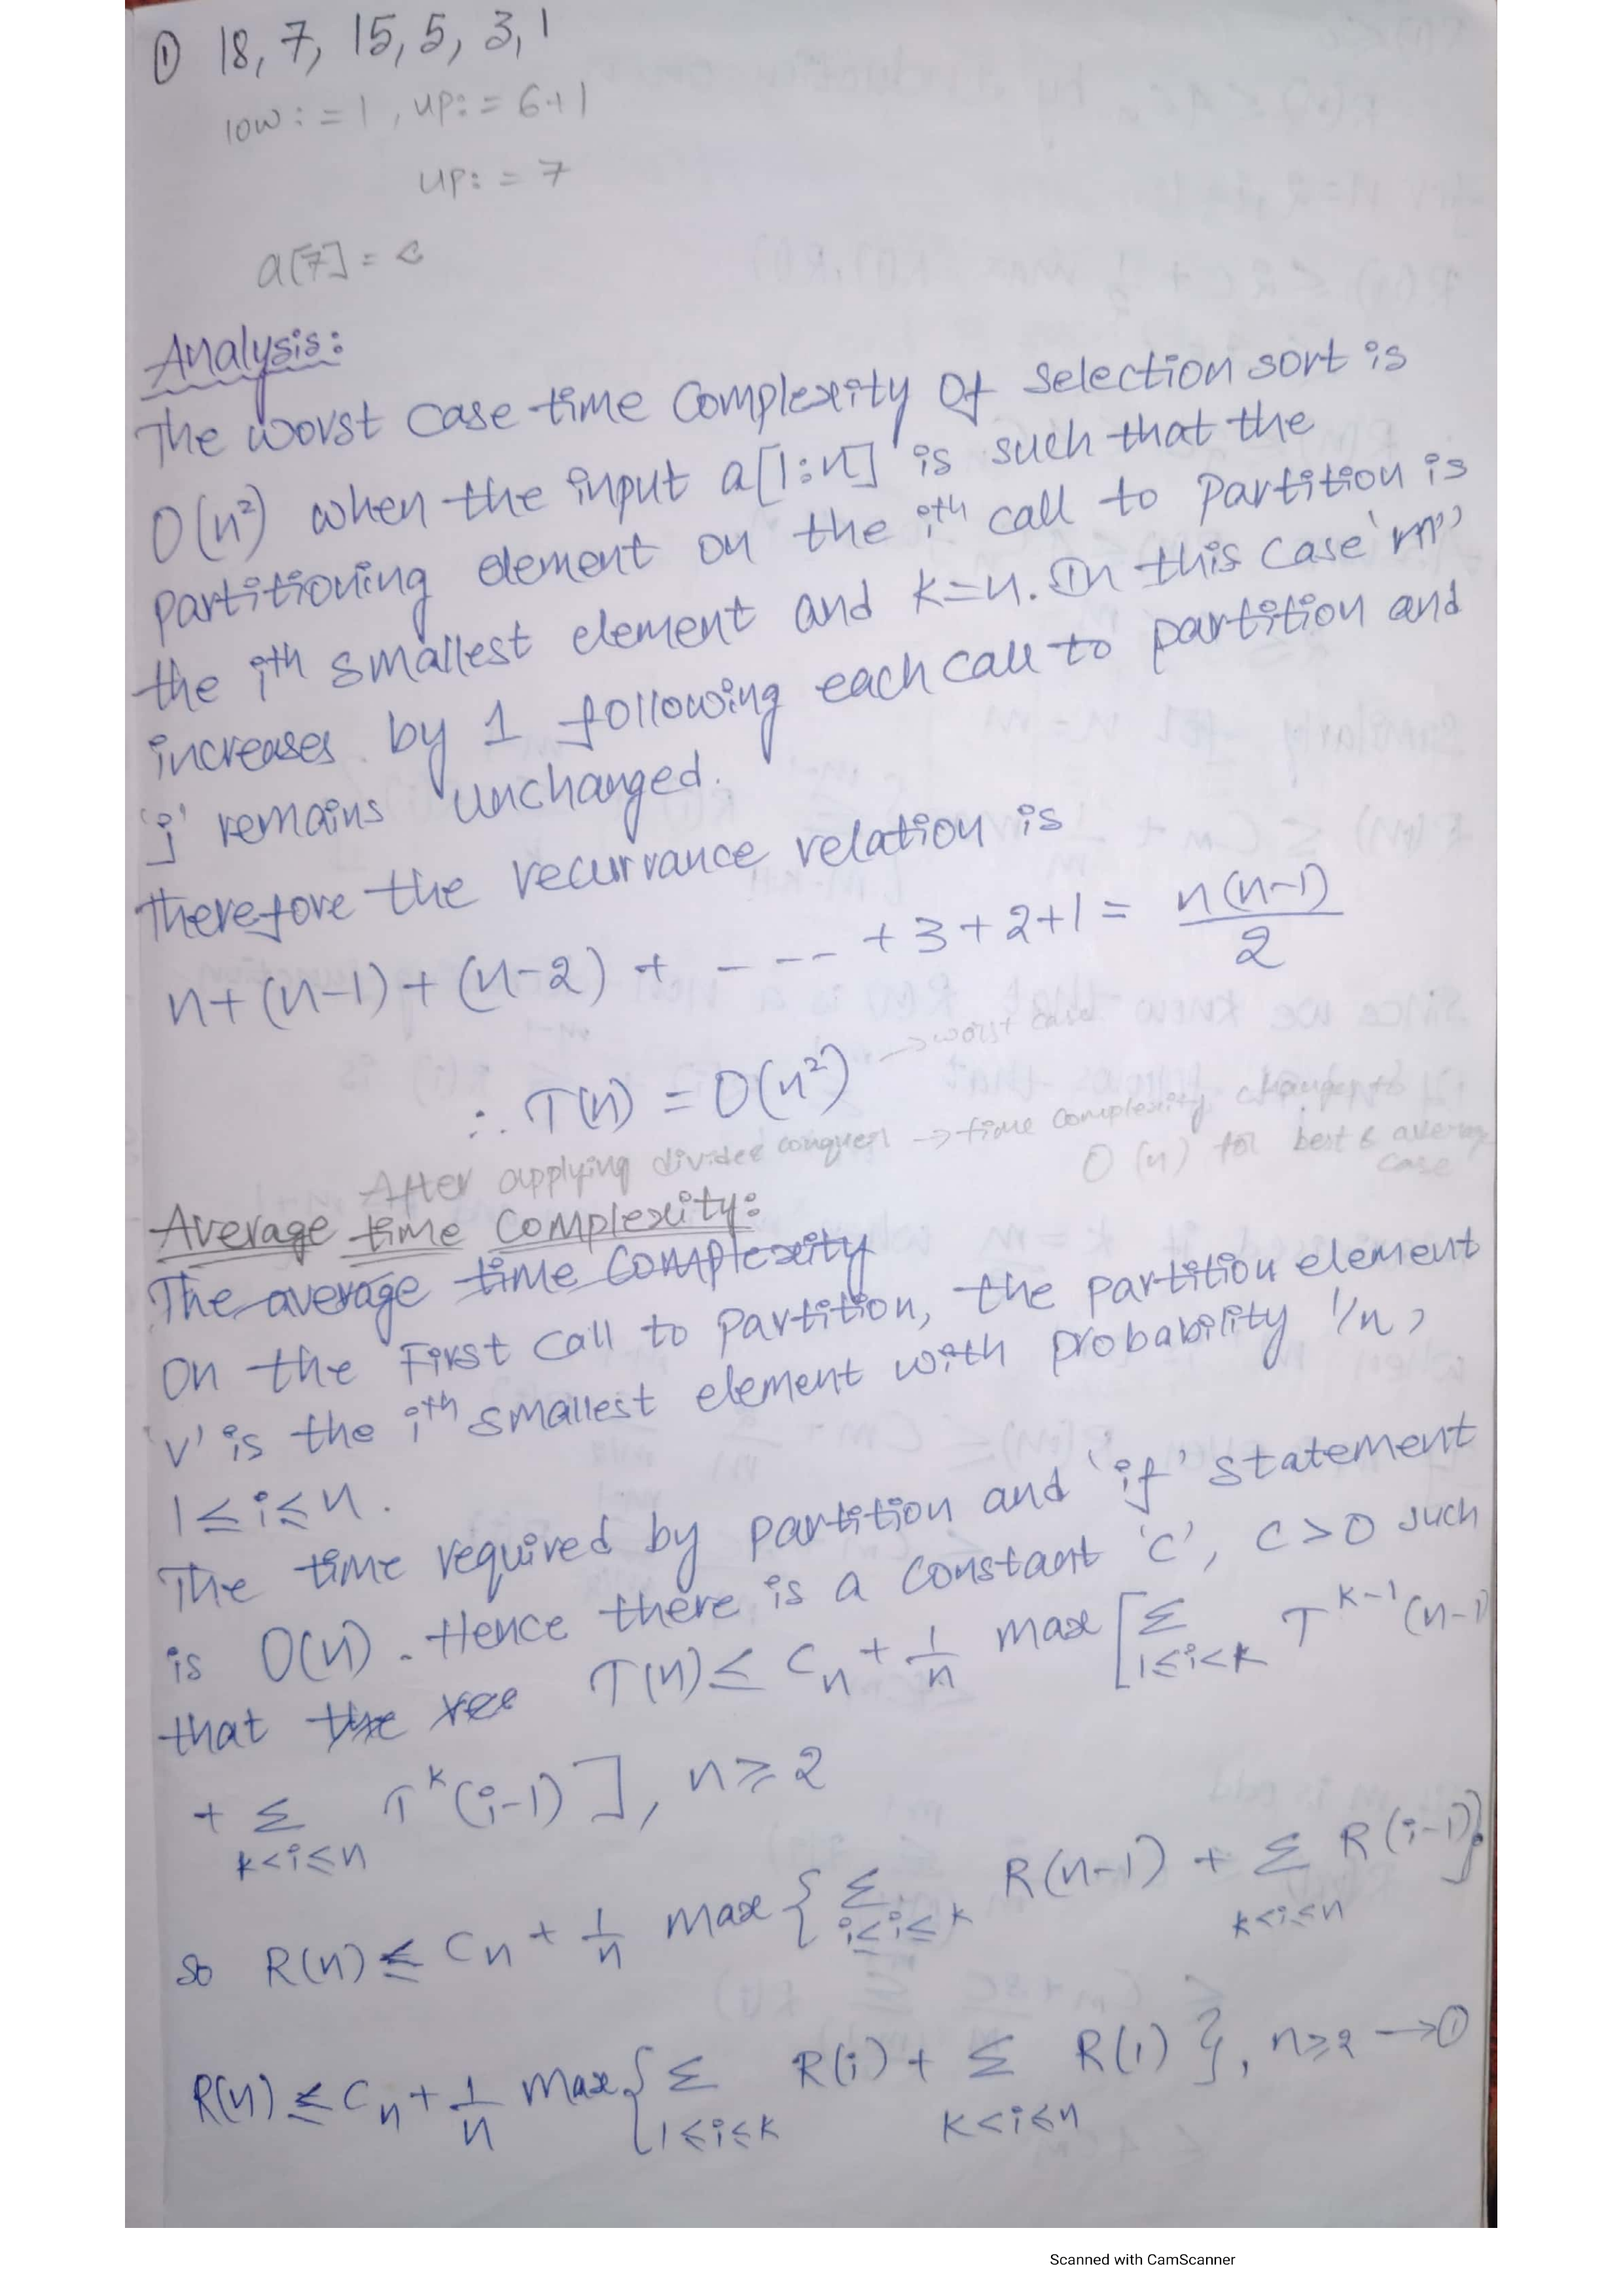 ① 18, 7, 15, 5, 3, 1
low := 1, up := 6+1
up := 7
a[7] =
Analysis:
The worst case time complexity of selection sort is
O(n²) when the input a[1:n] is such that the
partitioning element on the iᵗʰ call to partition is
the iᵗʰ smallest element and k=n. In this case 'm'
increases by 1 following each call to partition and
'j' remains unchanged.
therefore the recurrance relation is
n+(n-1)+(n-2)+ - --- +3+2+1 = n(n-1)/2
∴ T(n) = O(n²) → worst case
After applying divide conquer → time complexity changes to
O(n) for best & average case
Average time complexity:
The average time complexity
On the First call to partition, the partition element
'v' is the iᵗʰ smallest element with probability 1/n,
1≤i≤n.
The time required by partition and 'if' statement
is O(n). Hence there is a constant 'c', c>0 such
that the T(n) ≤ Cn + 1/n max [ Σ 1≤i<k Tᵏ⁻¹(n-1)
+ Σ k<i≤n Tᵏ(i-1) ], n≥2
so R(n) ≤ Cn + 1/n max { Σ i≤i≤k R(n-1) + Σ k<i≤n R(i-1) }
R(n) ≤ Cn + 1/n max { Σ 1≤i≤k R(i) + Σ k<i≤n R(i) }, n≥2 → ①
Scanned with CamScanner